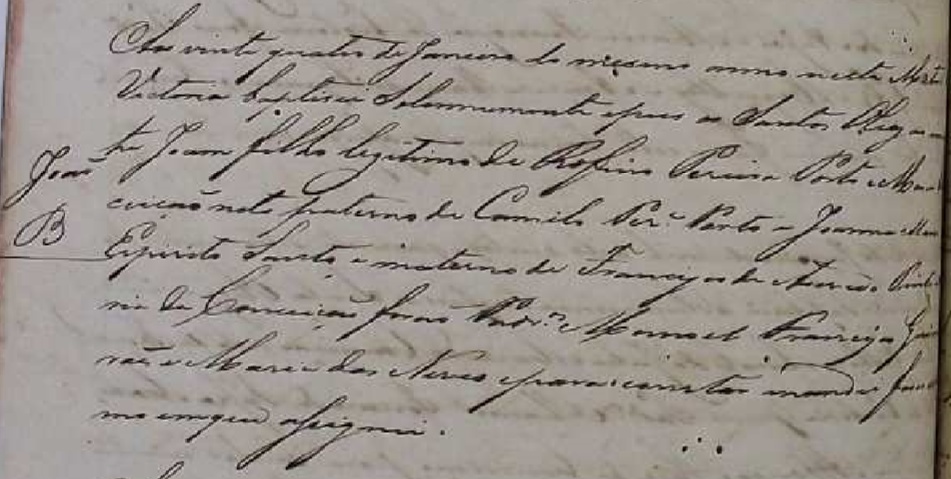 Aos vinte quatro de Janeiro do mesmo anno nesta Matr
Victoria baptisei Solemnemente e puz os Santos Oleos a
João
te Joam filho legitimo de Rofino Pereira Porto e Ma
B
ceição neto paterno de Camilo Per.ª Porto e Joanna Ma
Espirito Santo, e materno de Francisco de Azevedo
ria da Conceição forão Padr.os Manoel Francisco
rão e Maria das Neves e para constar mandei faser
mo em que assignei.